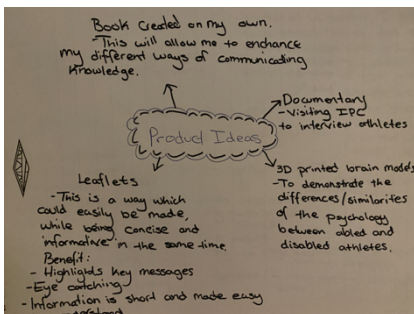 Book created on my own.
-This will allow me to enchance
my different ways of communicating
knowledge.
Documentary
- Visiting IPC
to interview athletes
Product Ideas
3D printed brain models
-To demonstrate the
differences/similarities
of the psychology
between abled and
disabled athletes.
Leaflets
-This is a way which
could easily be made,
while being concise and
informative in the same time.
Benefit:
- Highlights key messages
- Eye catching
- Information is short and made easy